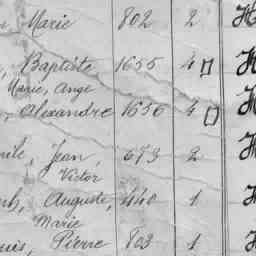 Marie 802 2 H
, Baptiste 1655 4 H
Marie, Ange
, Alexandre 1656 4 H
, Jean, 673 2 H
Victor
, Auguste, 440 1 H
Marie
, Pierre 803 1 H